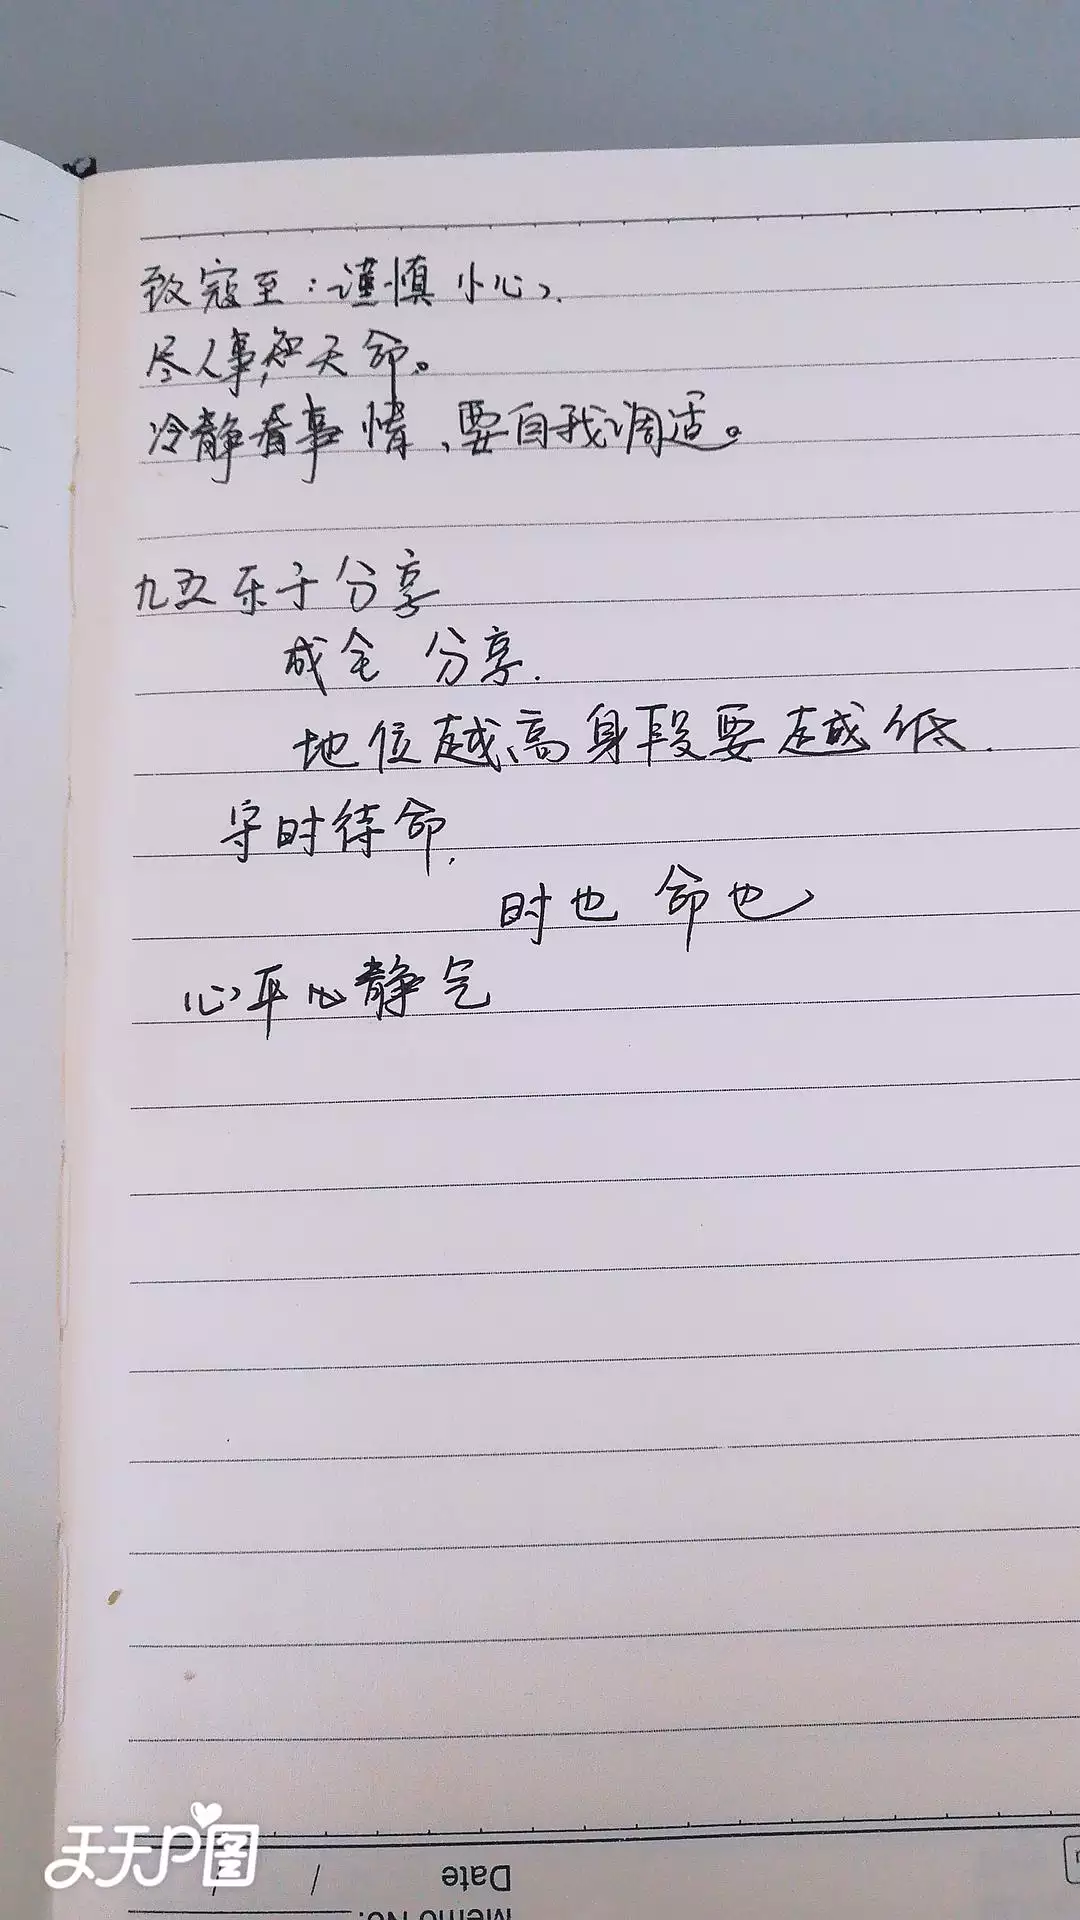 致寇至：谨慎小心、
尽人事,知天命。
冷静看事情、要自我调适。
九五乐于分享
成全 分享.
地位越高身段要越低.
守时待命.
时也 命也
心平心静气
天天P图
Date
Memo No.: